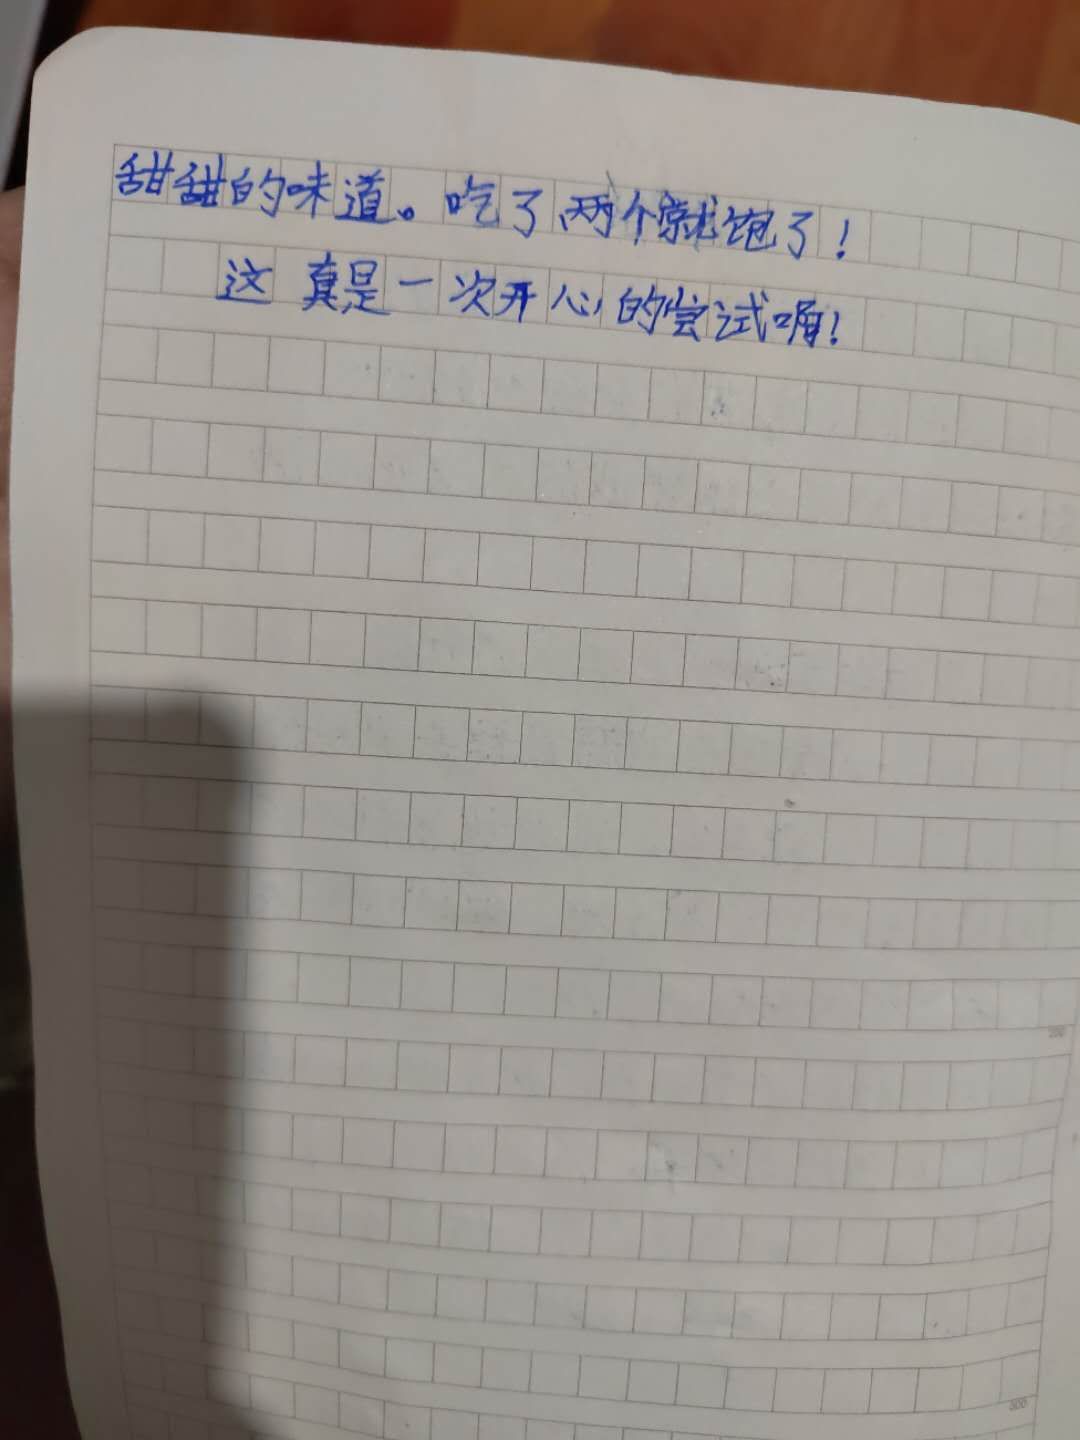 甜甜的味道。吃了两个就饱了！
这真是一次开心的尝试啊！
200
300